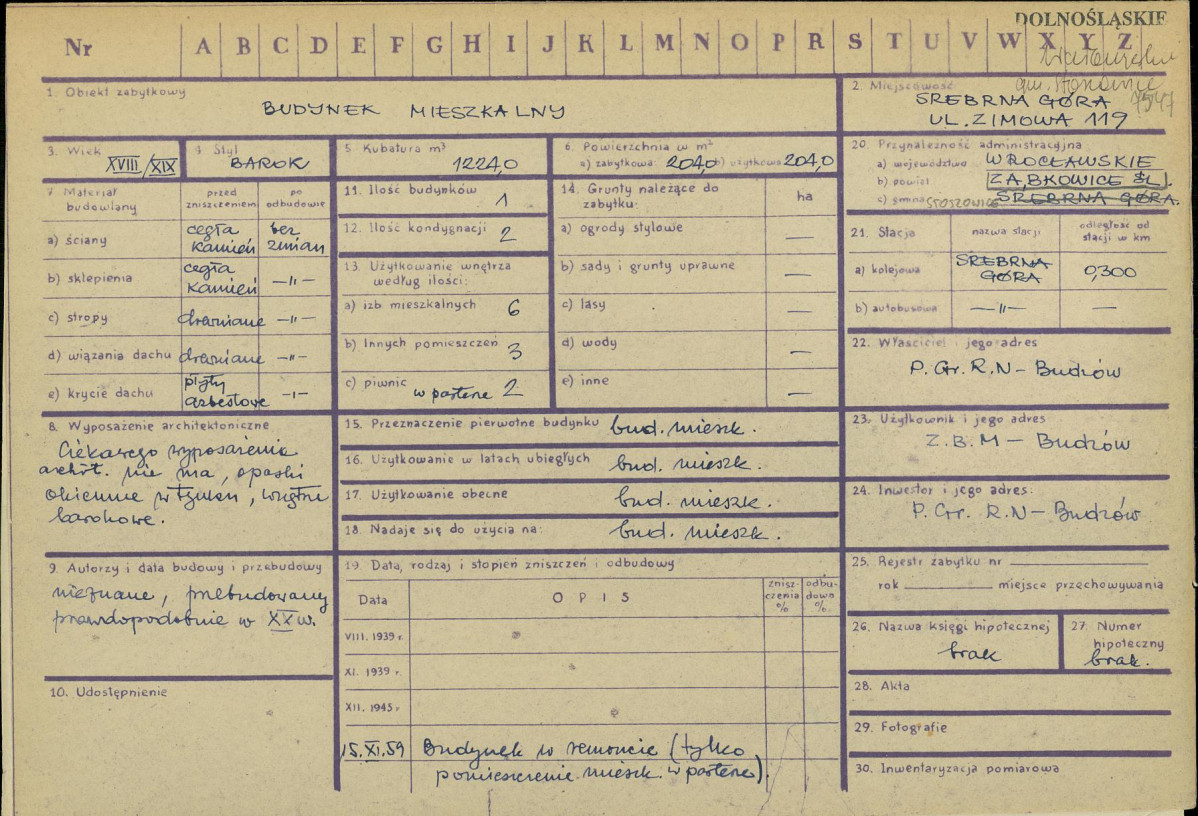 DOLNOŚLĄSKIE
Nr A B C D E F G H I J K L M N O P R S T U V W X Y Z
gm. Stoszowice
7547
1. Obiekt zabytkowy
BUDYNEK MIESZKALNY
2. Miejscowość
SREBRNA GÓRA
UL. ZIMOWA 119
3. Wiek
XVIII/XIX
4 Styl
BAROK
5 Kubatura m³
1224,0
6. Powierzchnia w m²
a) zabytkowa 204,0 b) użytkowa 204,0
7 Materiał budowlany
przed zniszczeniem
po odbudowie
a) ściany cegła kamień bez zmian
b) sklepienia cegła kamień —"—
c) stropy drewniane —"—
d) wiązania dachu drewniane —"—
e) krycie dachu płyty azbestowe —"—
8. Wyposażenie architektoniczne
Ciekawego wyposażenia
archit. nie ma, opaski
okienne w tynku, wnętrz
barokowe.
9. Autorzy i data budowy i przebudowy
nieznane, przebudowany
prawdopodobnie w XX w.
10. Udostępnienie
11. Ilość budynków 1
12. Ilość kondygnacji 2
13. Użytkowanie wnętrza
według ilości:
a) izb mieszkalnych 6
b) Innych pomieszczeń 3
c) piwnic w parterze 2
14. Grunty należące do
zabytku: ha
a) ogrody stylowe —
b) sady i grunty uprawne —
c) lasy —
d) wody —
e) inne —
15. Przeznaczenie pierwotne budynku bud. mieszk.
16. Użytkowanie w latach ubiegłych bud. mieszk.
17. Użytkowanie obecne bud. mieszk.
18. Nadaje się do użycia na: bud. mieszk.
19. Data, rodzaj i stopień zniszczeń i odbudowy
Data OPIS znisz-czenia % odbu-dowa %
VIII. 1939 r.
XI. 1939 r.
XII. 1945 r.
15.XI.59 Budynek w remoncie (tylko
pomieszczenie mieszk. w parterze).
20. Przynależność administracyjna
a) województwo WROCŁAWSKIE
b) powiat ZĄBKOWICE ŚL.
c) gmina STOSZOWICE SREBRNA GÓRA.
21. Stacja nazwa stacji odległość od stacji w km
a) kolejowa SREBRNA GÓRA 0,300
b) autobusowa —"— —
22. Właściciel i jego adres
P. Gr. R.N – Budzów
23. Użytkownik i jego adres
Z.B.M – Budzów
24. Inwestor i jego adres:
P. Gr. R.N – Budzów
25. Rejestr zabytku nr
rok miejsce przechowywania
26. Nazwa księgi hipotecznej
brak
27. Numer
hipoteczny
brak.
28. Akta
29. Fotografie
30. Inwentaryzacja pomiarowa